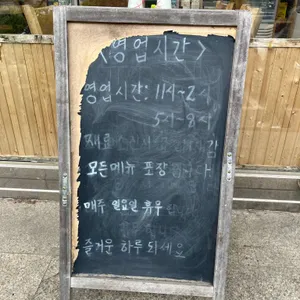 <영업시간>
영업시간: 11시~2시
5시~8시
재료
모든메뉴 포장
매주 일요일 휴무
즐거운 하루 되세요